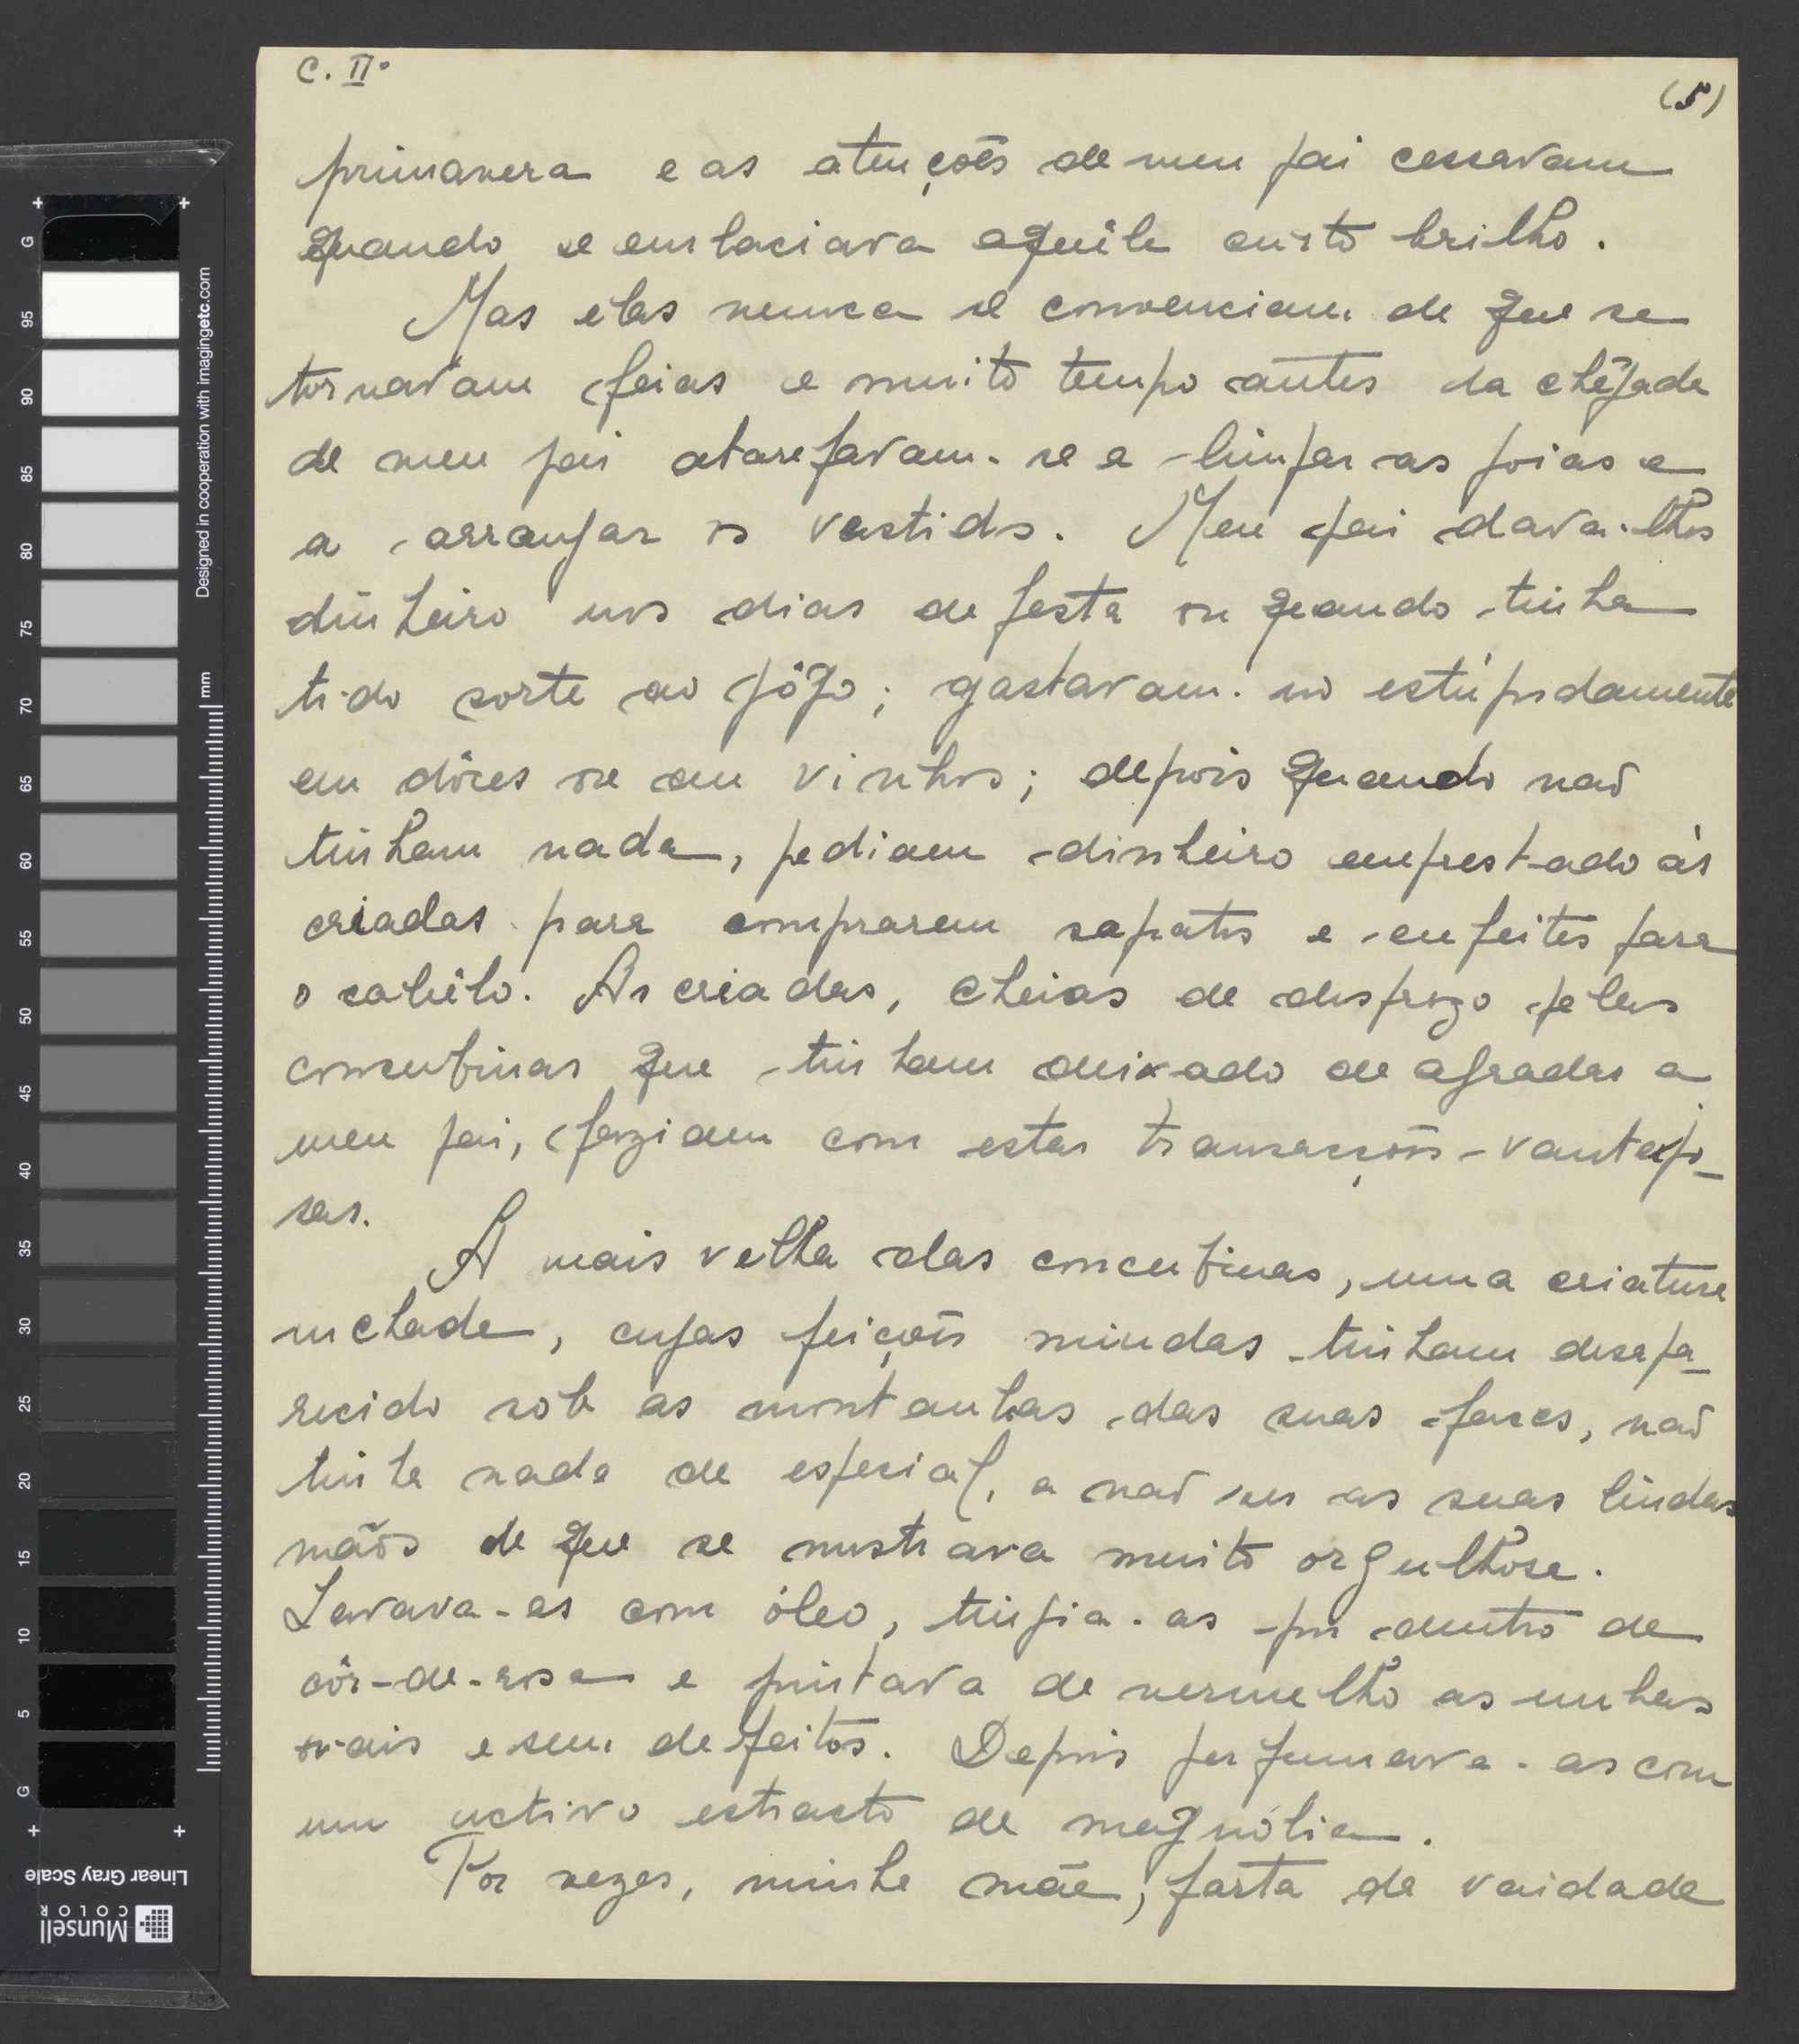 C. IIº
(5)
primavera e as atenções de meu pai cessavam
quando se embaciava aquêle curto brilho.
Mas elas nunca se convenciam de que se
tornavam feias e muito tempo antes da chegada
de meu pai atarefavam-se a limpar as joias e
a arranjar os vestidos. Meu pai dava-lhes
dinheiro nos dias de festa ou quando tinha
tido sorte ao jôgo; gastavam-no estúpidamente
em dôces ou em vinhos; depois quando não
tinham nada, pediam dinheiro emprestado às
criadas para comprarem sapatos e enfeites para
o cabêlo. As criadas, cheias de desprezo pelas
concubinas que tinham deixado de agradar a
meu pai, faziam com estas transacções vantajo-
sas.
A mais velha das concubinas, uma criatura
inchada, cujas feições miudas tinham desapa-
recido sob as montanhas das suas faces, não
tinha nada de especial, a não ser as suas lindas
mãos de que se mostrava muito orgulhosa.
Lavava-as com óleo, tingia-as por dentro de
côr-de-rosa e pintava de vermelho as unhas
ovais e sem defeitos. Depois perfumava-as com
um activo estracto de magnólia.
Por vezes, minha mãe, farta da vaidade
G
95
90
85
80
75
70
65
60
55
50
45
40
35
30
25
20
15
10
5
G
mm
Designed in cooperation with imagingetc.com
Linear Gray Scale
Munsell
COLOR